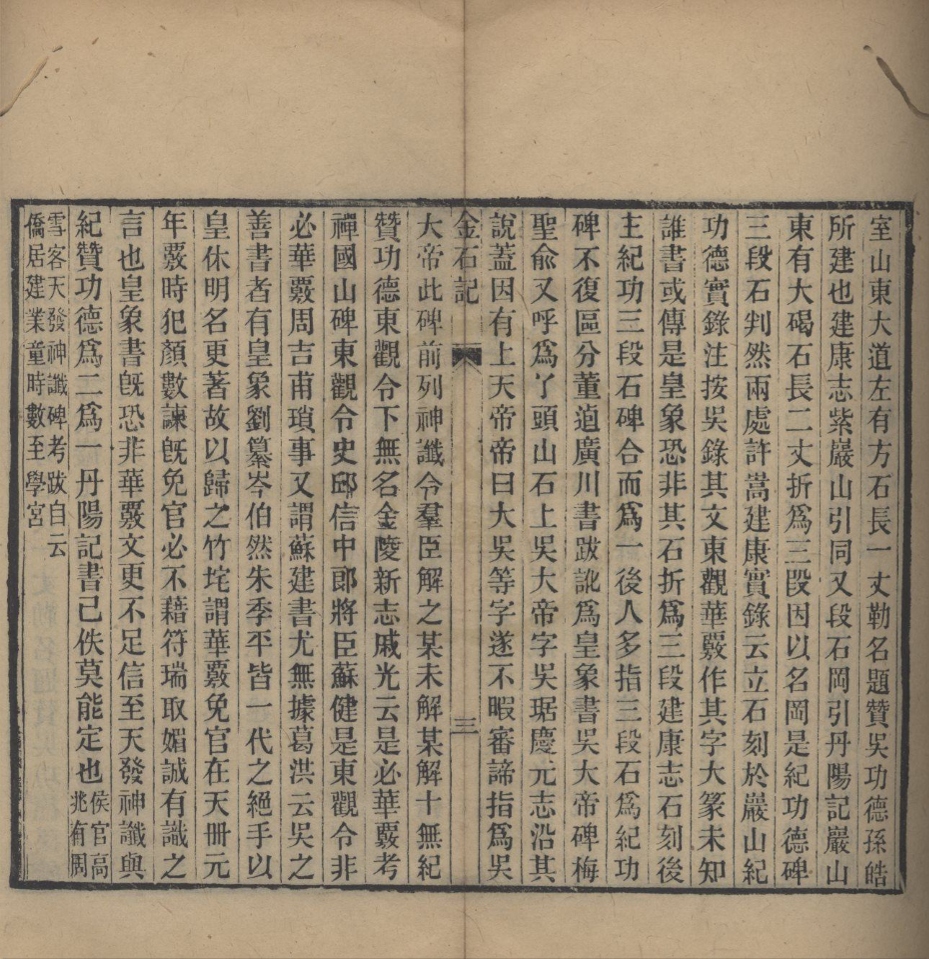 室山東大道左有方石長一丈勒名題贊吳功德孫皓
所建也建康志紫巖山引同又段石岡引丹陽記巖山
東有大碣石長二丈折爲三段因以名岡是紀功德碑
三段石判然兩處許嵩建康實錄云立石刻於巖山紀
功德實錄注按吳錄其文東觀華覈作其字大篆未知
誰書或傳是皇象恐非其石折爲三段建康志石刻後
主紀功三段石碑合而爲一後人多指三段石爲紀功
碑不復區分董逌廣川書跋訛爲皇象書吳大帝碑梅
聖兪又呼爲了頭山石上吳大帝字吳琚慶元志沿其
說蓋因有上天帝帝曰大吳等字遂不暇審諦指爲吳
金石記
三
大帝此碑前列神讖令羣臣解之某未解某解十無紀
贊功德東觀令下無名金陵新志戚光云是必華覈考
禪國山碑東觀令史邱信中郎將臣蘇健是東觀令非
必華覈周吉甫瑣事又謂蘇建書尤無據葛洪云吳之
善書者有皇象劉纂岑伯然朱季平皆一代之絕手以
皇休明名更著故以歸之竹垞謂華覈免官在天冊元
年覈時犯顏數諫旣免官必不藉符瑞取媚誠有識之
言也皇象書旣恐非華覈文更不足信至天發神讖與
紀贊功德爲二爲一丹陽記書已佚莫能定也侯官高
兆有周
雪客天發神讖碑考跋自云
僑居建業童時數至學宮